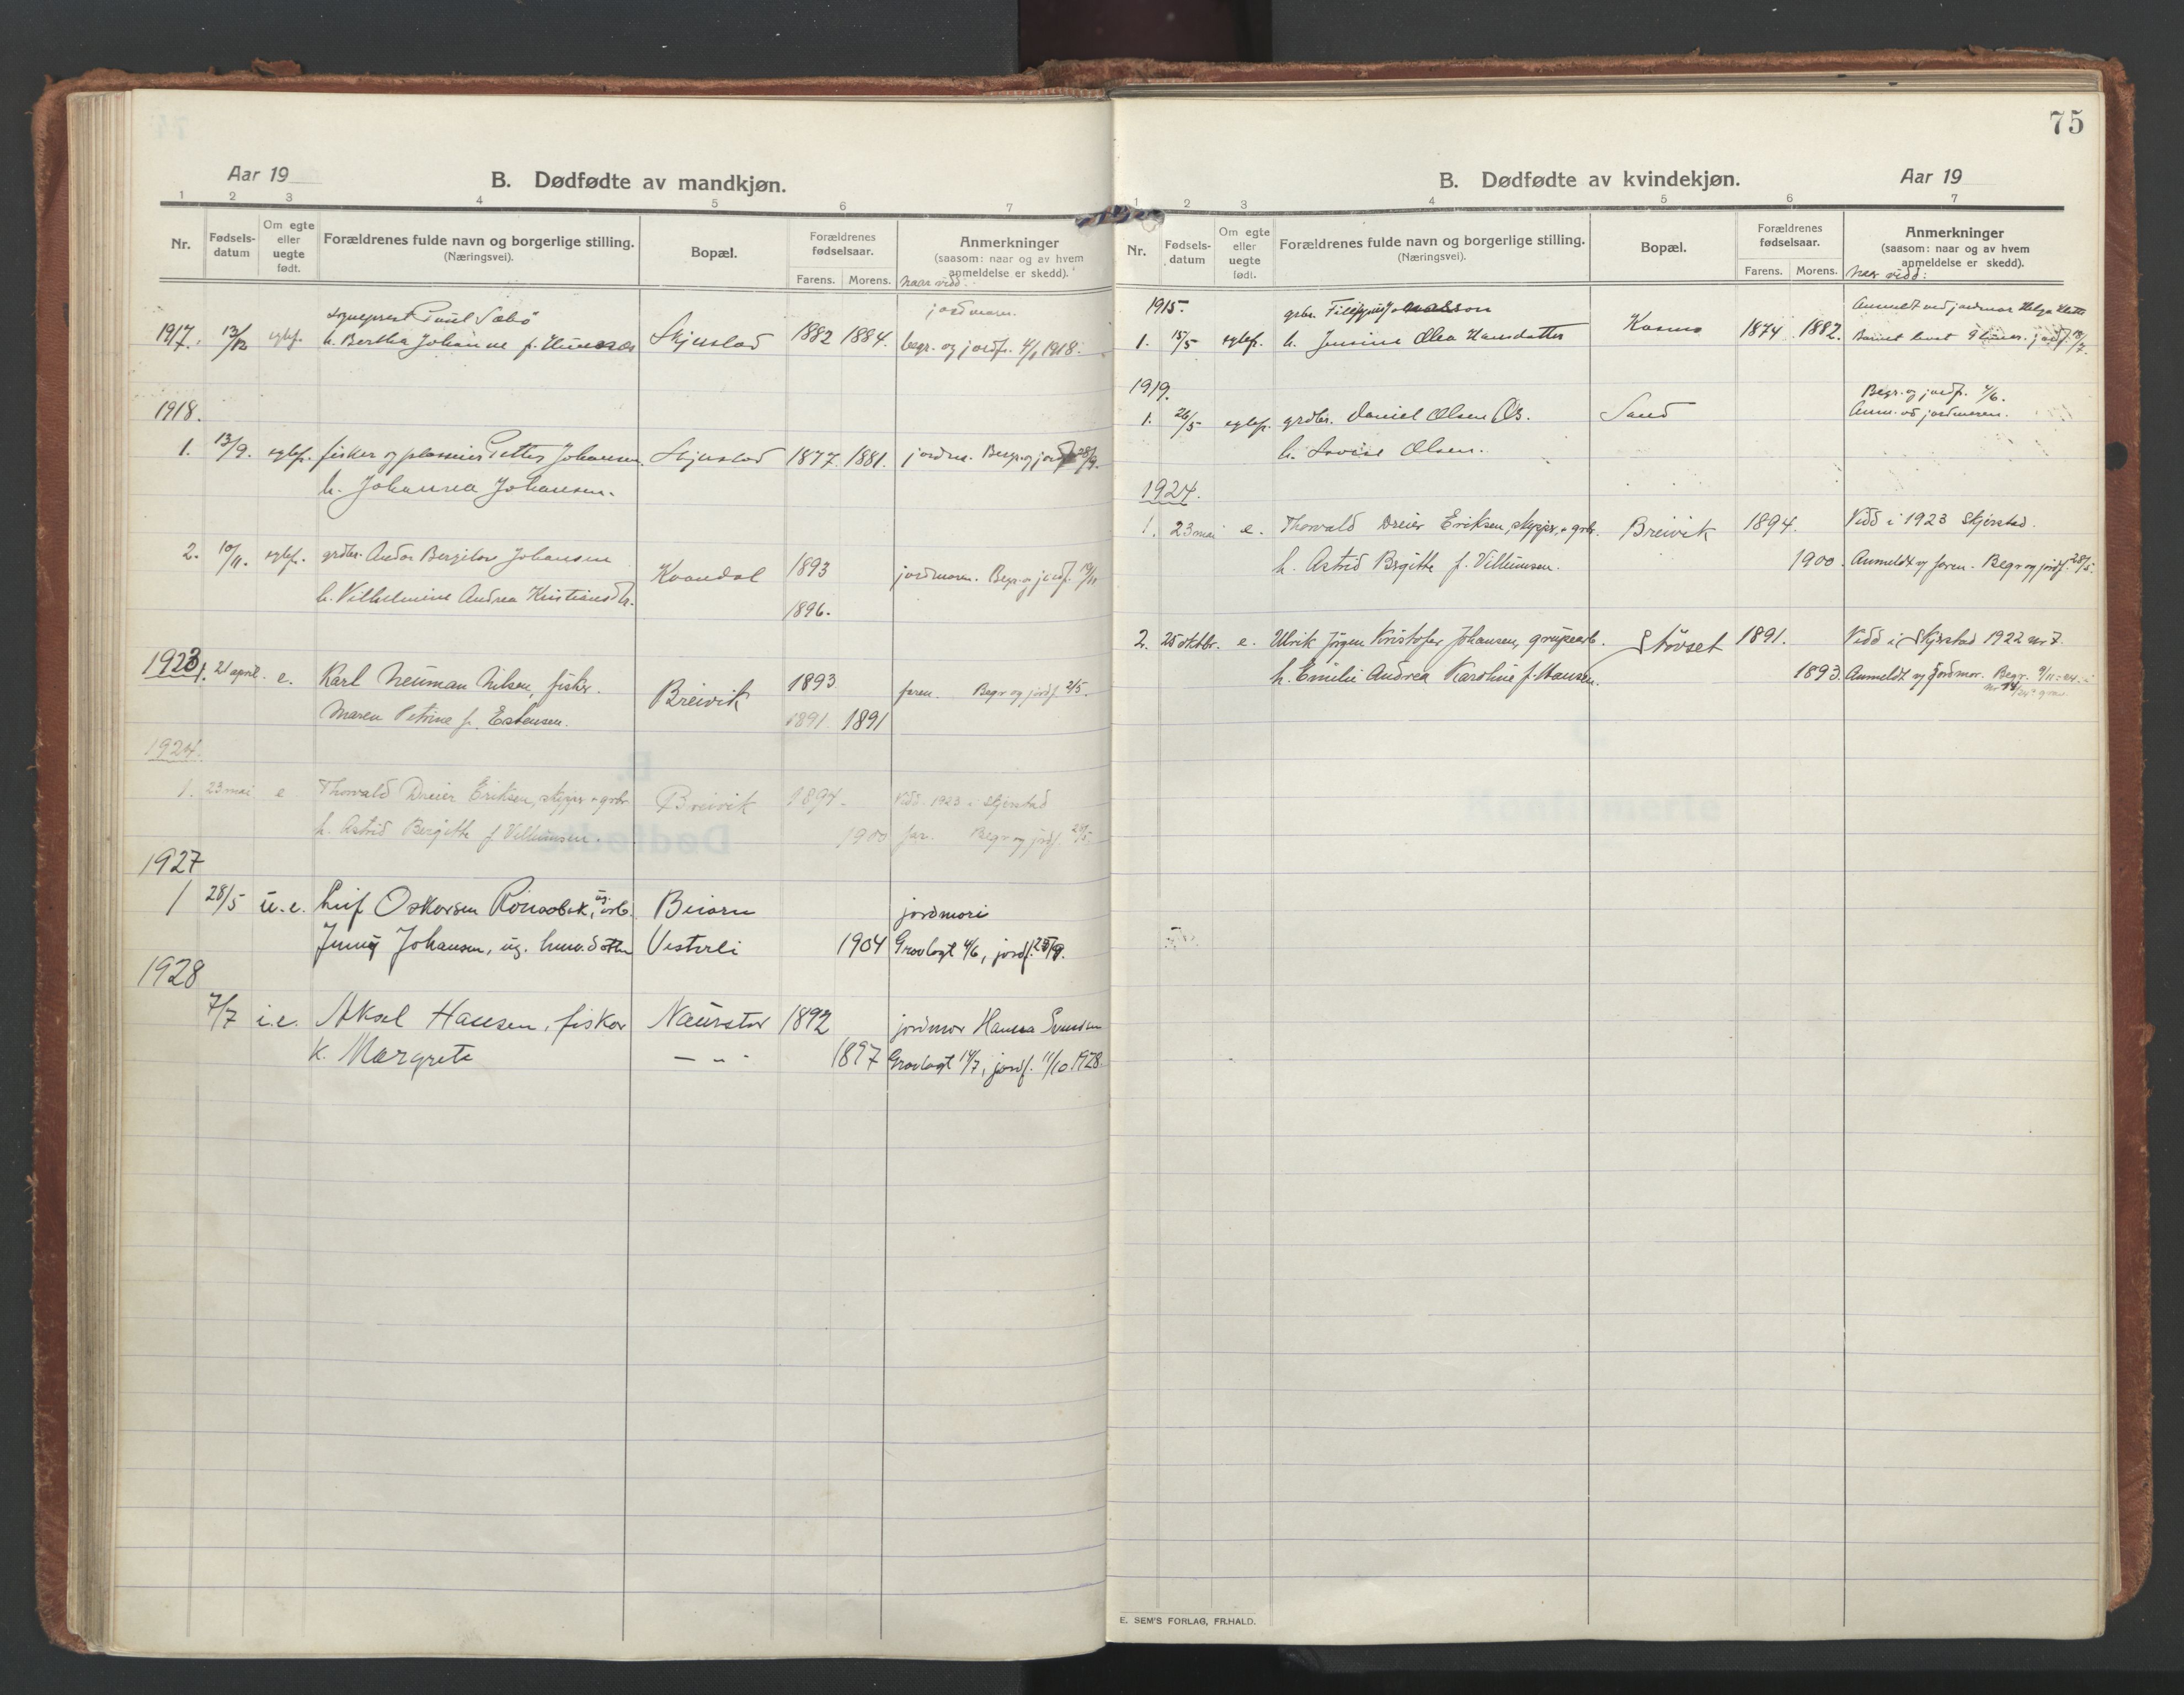 Aar 19
B. Dødfødte av mandkjøn.
1 2 3 4 5 6 7
Nr. Fødsels-datum Om egte eller uegte født. Forældrenes fulde navn og borgerlige stilling. (Næringsvei). Bopæl. Forældrenes fødselsaar. Farens. Morens. Anmerkninger (saasom: naar og av hvem anmeldelse er skedd).
naar vidd:
sogneprest Sæbø jordmoren.
1917. 13/12 egtef. h. Bertha Johanne f. Skjerstad 1882 1884. begr. og jordf. 4/1 1918.
1918.
1. 13/9. egtef. fisker og Petter Johansen. Skjerstad 1877. 1881. jordm. Begr. og jordf. 28/9.
h. Johanna Johansen.
2. 10/11. egtef. grdbr. Andor Bergiton Johansen Kvandal 1893 jordmoren. Begr. og jordf. 19/11
h. Vilhelmine Andrea Kristiansdtr. 1896.
1923
1. 21 april. e. Karl Neuman Nilsen, fisker. Breivik 1893 faren. Begr og jordf. 2/5.
Maren Petrine f. Estensen. 1891. 1891
1924.
1. 23 mai e Thorvald Dreier Eriksen, skipper + grbr. Breivik 1894. Vidd. 1923 i Skjerstad
h. Astrid Bergitte f. Vilhumsen. 1900 far. Begr og jordf. 28/5.
1927
1 28/5 u.e. Leif Oskarsen ug. arb. Beiarn jordmori
Jenny Johansen, ug. Vesterli 1904 Gravlagt 4/6, jordf. 25/9.
1928
7/7 i.e. Aksel Hansen, fisker Naurstad 1892 jordmor Hanna
K. Margrete — " - 1897 Gravlagt 14/7, jordf. 11/10 1928.
75
B. Dødfødte av kvindekjøn.
Aar 19
1 2 3 4 5 6 7
Nr. Fødsels-datum Om egte eller uegte født. Forældrenes fulde navn og borgerlige stilling. (Næringsvei). Bopæl. Forældrenes fødselsaar. Farens. Morens. Anmerkninger (saasom: naar og av hvem anmeldelse er skedd).
naar vidd:
1915. grbr. Anmeldt ved jordmor Helga
1. 15/5 egtef. h. Jensine Olea Hansdatter 1874. 1882. Barnet levet 9 timer. jordf. 18/7.
1919. Begr. og jordf. 4/6.
1. 26/5 egtef. grdbr. Daniel Olsen Os. Sand Anm. av jordmoren.
h. Lovise Olsen.
1924.
1. 23 mai e. Thorvald Dreier Eriksen, skipper + grbr. Breivik 1894. Vidd i 1923 Skjerstad.
h. Astrid Birgitte f. Villumsen. 1900. Anmeldt av faren. Begr og jordf. 28/5.
2. 25 oktbr. e. Ulrik Jørgen Kristofer Johansen, grubearb. Støvset 1891. Vidd i Skjerstad 1922 nr 7.
h. Emilie Andrea Karoline f. Hansen. 1893. Anmeldt av jordmor. Begr. 9/11-24.
E. SEM'S FORLAG, FR.HALD.